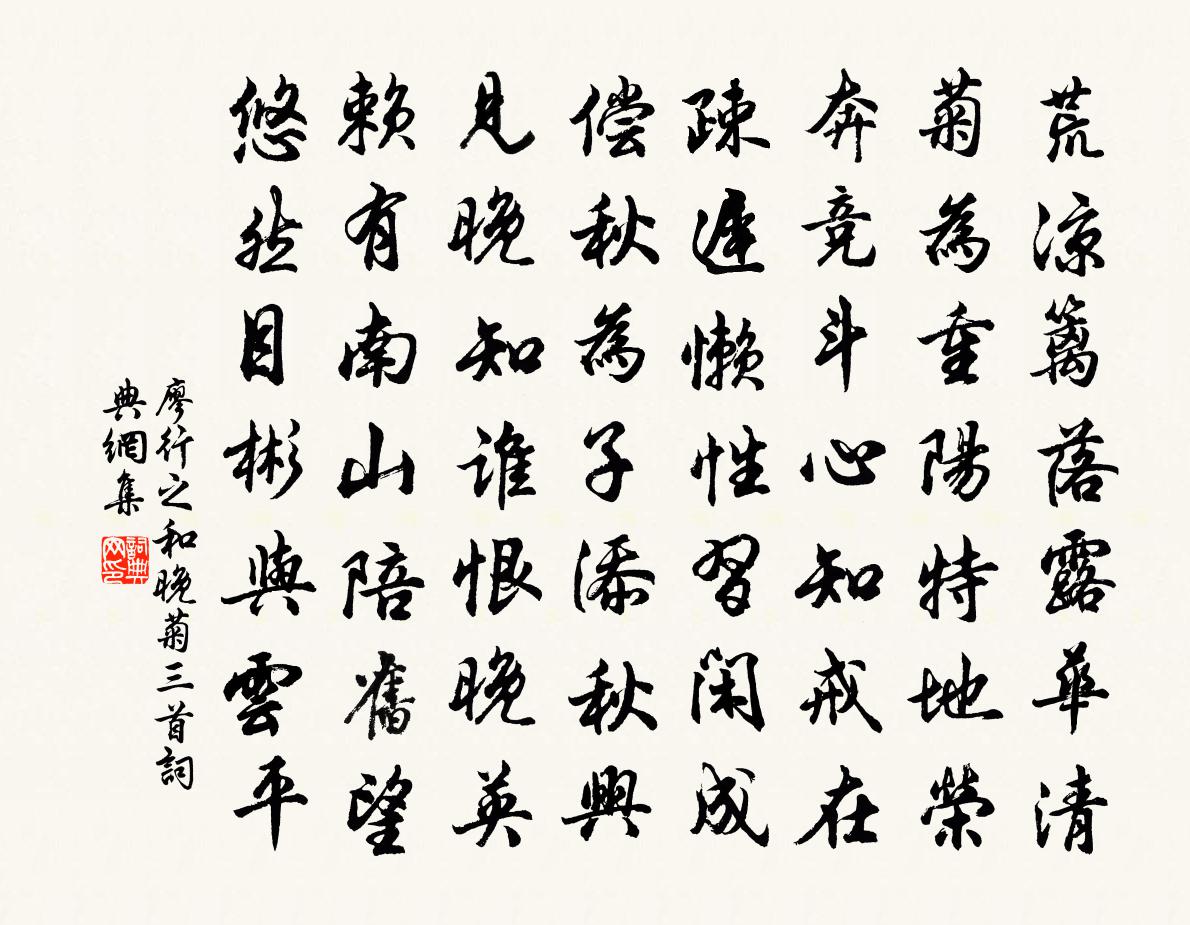 荒涼籬落露華清
菊為重陽特地榮
奔竞斗心知戒在
疎遲懒性習閑成
偿秋為子添秋興
見晚知谁恨晚英
賴有南山陪舊望
悠然目彬與雲平
廖行之和晚菊三首詞
典網集
詞典
网印